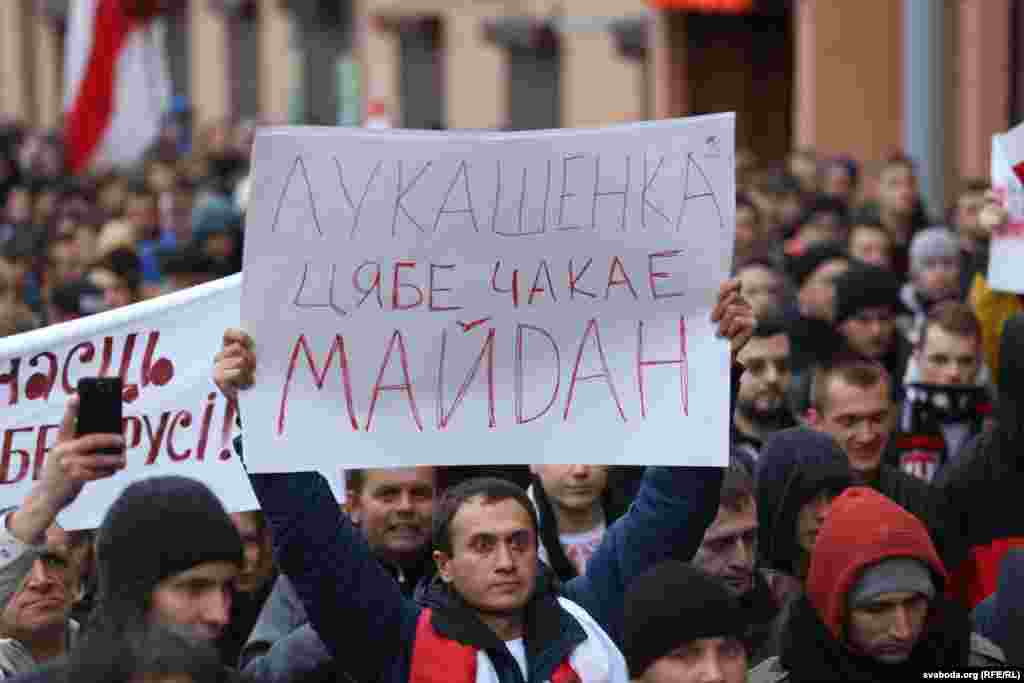 ЛУКАШЕНКА
ЦЯБЕ ЧАКАЕ
МАЙДАН
часць
РУСІ!
svaboda.org (RFE/RL)